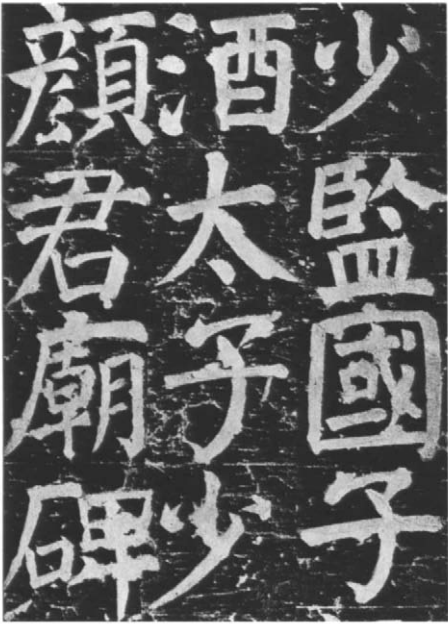 少監國子
酒太子少
顏君廟碑